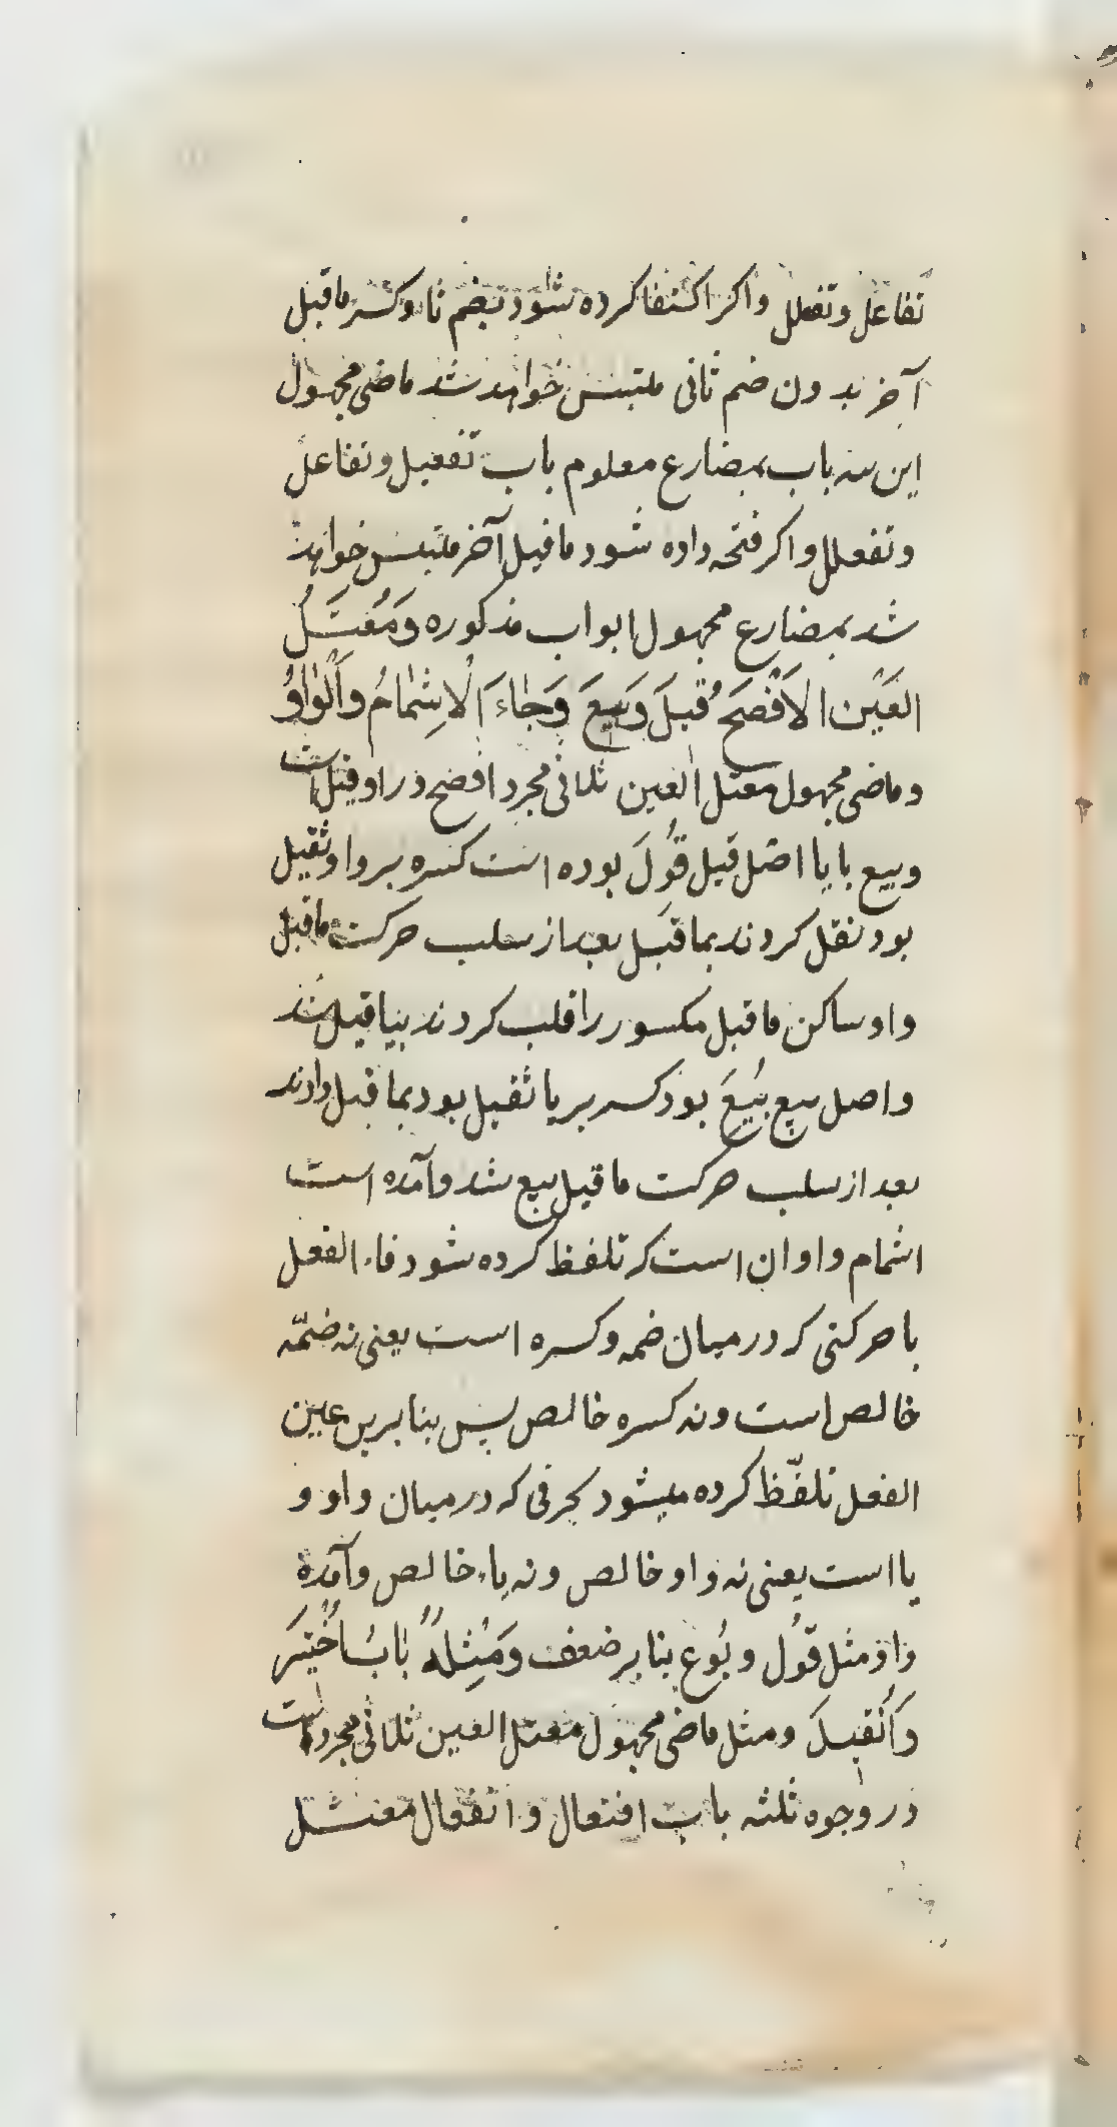 تفاعل وتفعلل واکر اکتفا کرده شود بضم تا وکسر ماقبل
آخر بدون ضم ثانی ملتبس خواهد شد ماضی مجهول
این سه باب بمضارع معلوم باب تفعیل وتفاعل
وتفعلل واکر فتحه داده شود ماقبل آخر ملتبس خواهد
شد بمضارع مجهول ابواب مذکوره وَمُعْتَلُّ
العَیْن الاَفْصَحُ قیلَ وَبیعَ وَجٰاءَ الْاِشْمٰامُ وَالْوٰاوُ
وماضی مجهول معتل العین ثلاثی مجرد افصح در او قیل است
وبیع با یا اصل قیل قُوِلَ بوده است کسره بر واو ثقیل
بود نقل کردند بماقبل بعد از سلب حرکت ماقبل
واو ساکن ماقبل مکسور را قلب کردند بیا قیل شد
واصل بیع بُیِعَ بود کسره بر یا ثقیل بود بماقبل دادند
بعد از سلب حرکت ماقبل بیع شد وآمده است
اشمام واو ان است که تلفظ کرده شود فاء الفعل
با حرکتی که در میان ضمه وکسره است یعنی نه ضمّه
خالص است ونه کسره خالص پس بنابرین عین
الفعل تلفّظ کرده میشود بحرفی که در میان واو و
یا است یعنی نه واو خالص ونه یاء خالص وآمده
واو مثل قُول و بُوع بنابر ضعف وَمِثْلُهُ بٰابُ اُخْتیرَ
وَاُنْقیدَ ومثل ماضی مجهول معتل العین ثلاثی مجرد است
در وجوه ثلثه باب افتعال وانفعال معتل